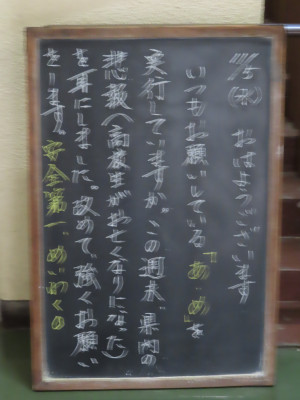 11/5(水) おはようございます
いつもお願いしている『あ・め』を
実行していますが、この週末、県内の
悲報(高校生がお亡くなりになった)
を耳にしました。改めて、強くお願い
をします。安全第一、めいわくの